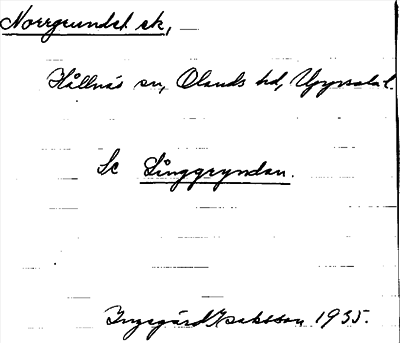 Norrgrundet sk,
Hållnäs sn, Olands hd, Uppsala l.
Se Långgryndan.
Ingegärd Isaksson 1935.